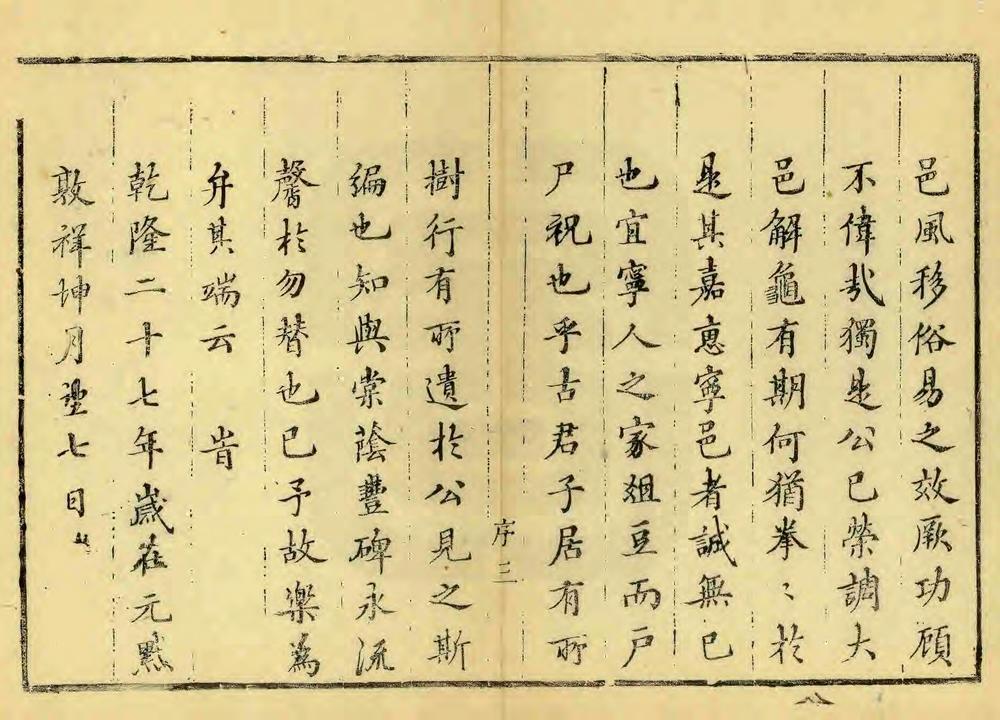 邑風移俗易之效厥功顧
不偉哉獨是公已榮調大
邑解龜有期何猶拳〻於
是其嘉惠寧邑者誠無已
也宜寧人之家俎豆而戶
尸祝也乎古君子居有所
序三
樹行有所遺於公見之斯
編也知與棠蔭豐碑永流
馨於勿替也已予故樂為
弁其端云 旹
乾隆二十七年歲在元黓
敦祥坤月望七日